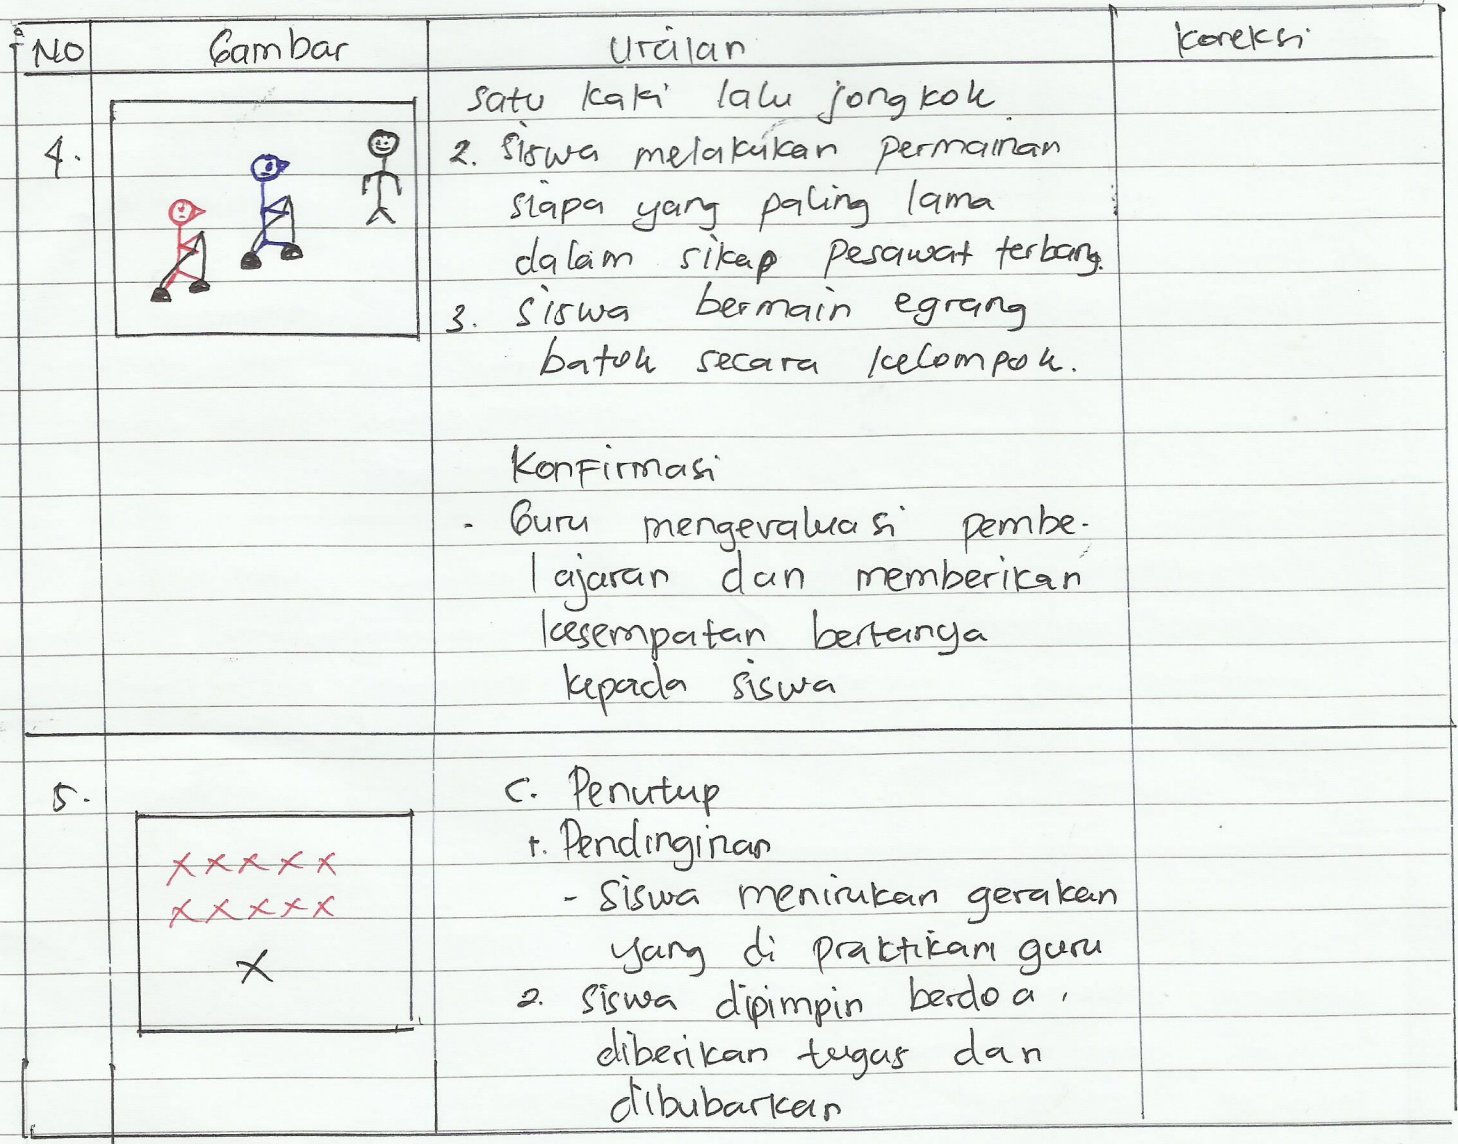 NO Gambar Uraian Koreksi
satu kaki lalu jongkok
4. 2. Siswa melakukan permainan
siapa yang paling lama
dalam sikap pesawat terbang.
3. Siswa bermain egrang
batok secara kelompok.
Konfirmasi
- Guru mengevaluasi pembe-
lajaran dan memberikan
kesempatan bertanya
kepada siswa
5. C. Penutup
1. Pendinginan
- Siswa menirukan gerakan
yang di praktikan guru
X X X X X
X X X X X
X
2. Siswa dipimpin berdoa,
diberikan tugas dan
dibubarkan